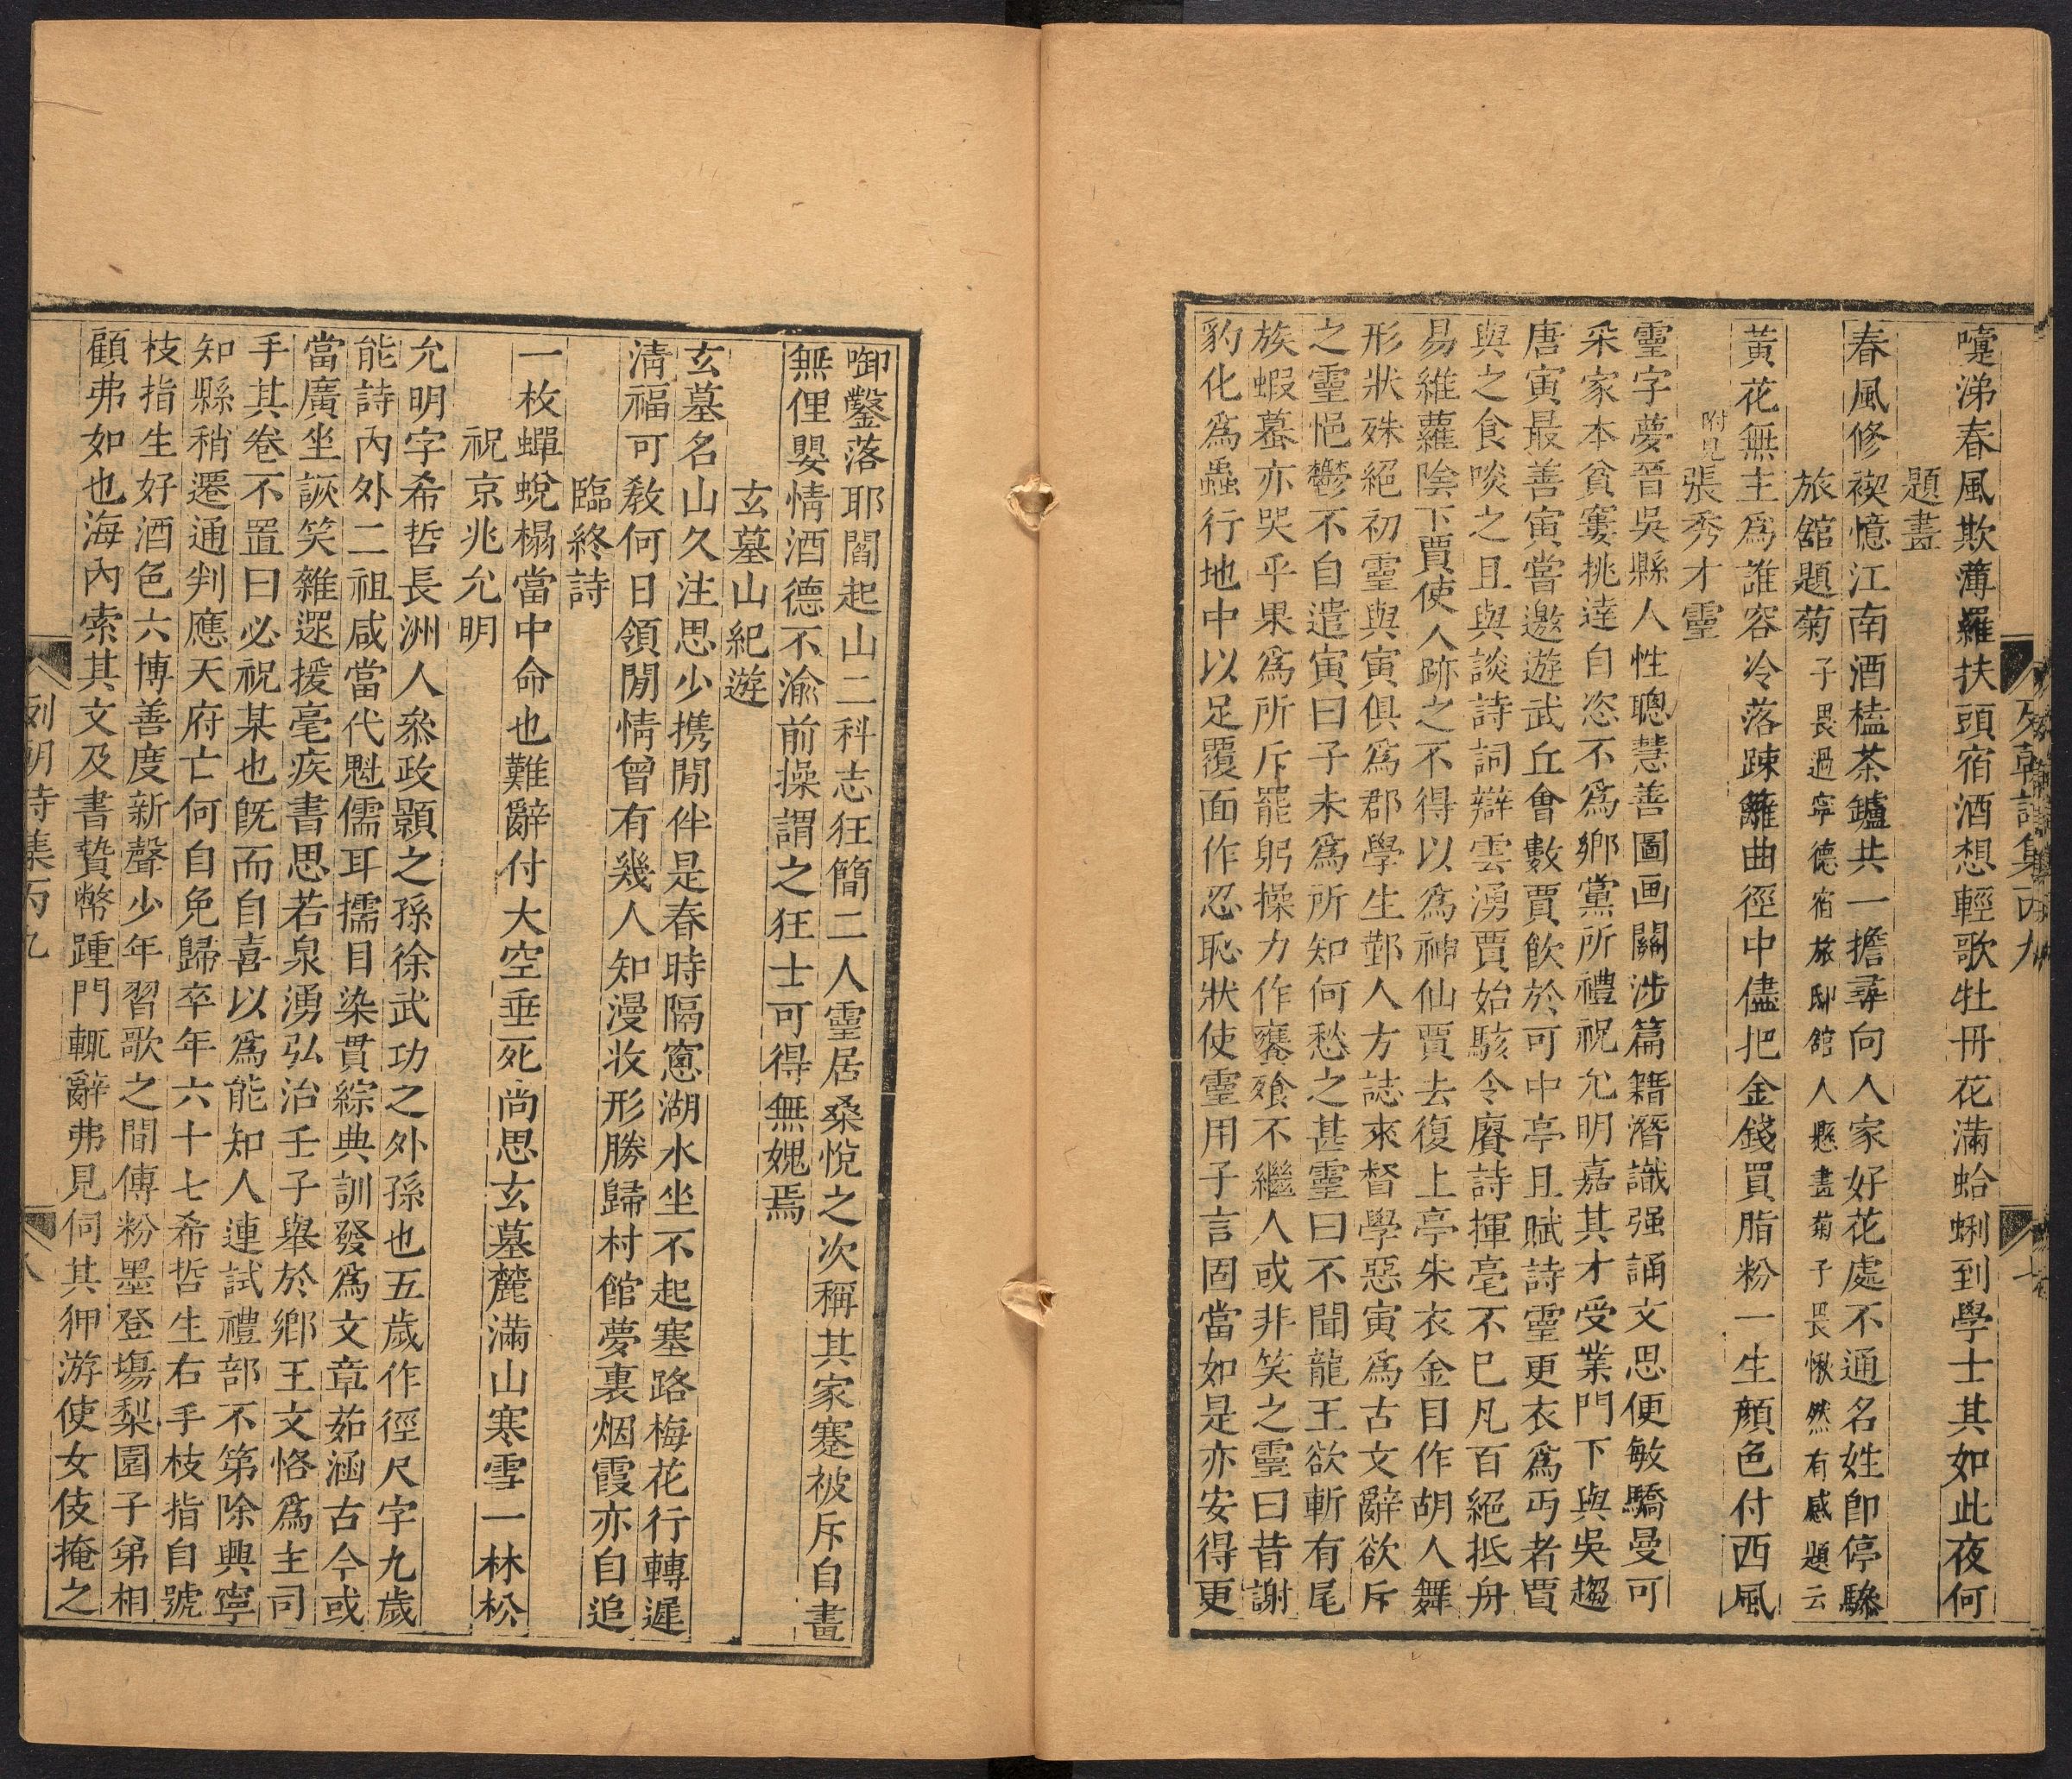 嚏涕春風欺薄羅扶頭宿酒想輕歌牡丹花滿蛤蜊到學士其如此夜何
題畫
春風修禊憶江南酒榼茶鑪共一擔尋向人家好花處不通名姓即停驂
旅舘題菊 子畏過寧德宿旅邸館人懸畫菊子畏愀然有感題云
黃花無主爲誰容冷落踈籬曲徑中儘把金錢買脂粉一生顔色付西風
附見 張秀才靈
靈字夢晉吳縣人性聰慧善圖画關涉篇籍潛識强誦文思便敏驕曼可
采家本貧窶挑達自恣不爲鄉黨所禮祝允明嘉其才受業門下與吳趨
唐寅最善寅嘗邀遊武丘會數賈飲於可中亭且賦詩靈更衣爲丐者賈
與之食啖之且與談詩詞辯雲湧賈始駭令賡詩揮毫不已凡百絕抵舟
易維蘿陰下賈使人跡之不得以爲神仙賈去復上亭朱衣金目作胡人舞
形狀殊絕初靈與寅俱爲郡學生鄞人方誌來督學惡寅爲古文辭欲斥
之靈悒鬱不自遣寅曰子未爲所知何愁之甚靈曰不聞龍王欲斬有尾
族蝦蟇亦哭乎果爲所斥罷躬操力作饔飧不繼人或非笑之靈曰昔謝
豹化爲蟲行地中以足覆面作忍恥狀使靈用子言固當如是亦安得更
啣鑿落耶閣起山二科志狂簡二人靈居桑悅之次稱其家蹇被斥自畫
無俚嬰情酒德不渝前操謂之狂士可得無媿焉
玄墓山紀遊
玄墓名山久注思少携閒伴是春時隔窻湖水坐不起塞路梅花行轉遲
淸福可敎何日領閒情曾有幾人知漫收形勝歸村館夢裏烟霞亦自追
臨終詩
一枚蟬蛻榻當中命也難辭付大空垂死尚思玄墓麓滿山寒雪一林松
祝京兆允明
允明字希哲長洲人叅政顥之孫徐武功之外孫也五歲作徑尺字九歲
能詩內外二祖咸當代魁儒耳擩目染貫綜典訓發爲文章茹涵古今或
當廣坐詼笑雜遝援毫疾書思若泉湧弘治壬子舉於鄉王文恪爲主司
手其卷不置曰必祝某也旣而自喜以爲能知人連試禮部不第除興寧
知縣稍遷通判應天府亡何自免歸卒年六十七希哲生右手枝指自號
枝指生好酒色六博善度新聲少年習歌之間傅粉墨登場梨園子弟相
顧弗如也海內索其文及書贄幣踵門輒辭弗見伺其狎游使女伎掩之
列朝詩集丙九
八